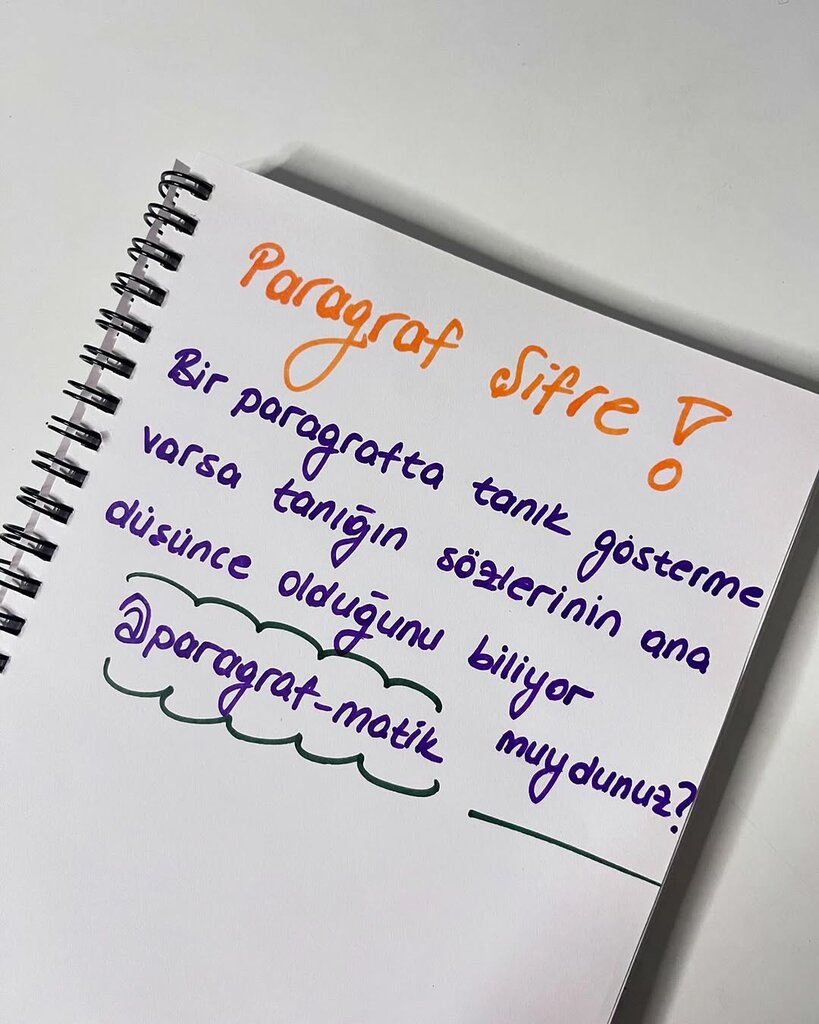 Paragraf Şifre !
Bir paragrafta tanık gösterme
varsa tanığın sözlerinin ana
düşünce olduğunu biliyor
muydunuz?
@paragraf-matik